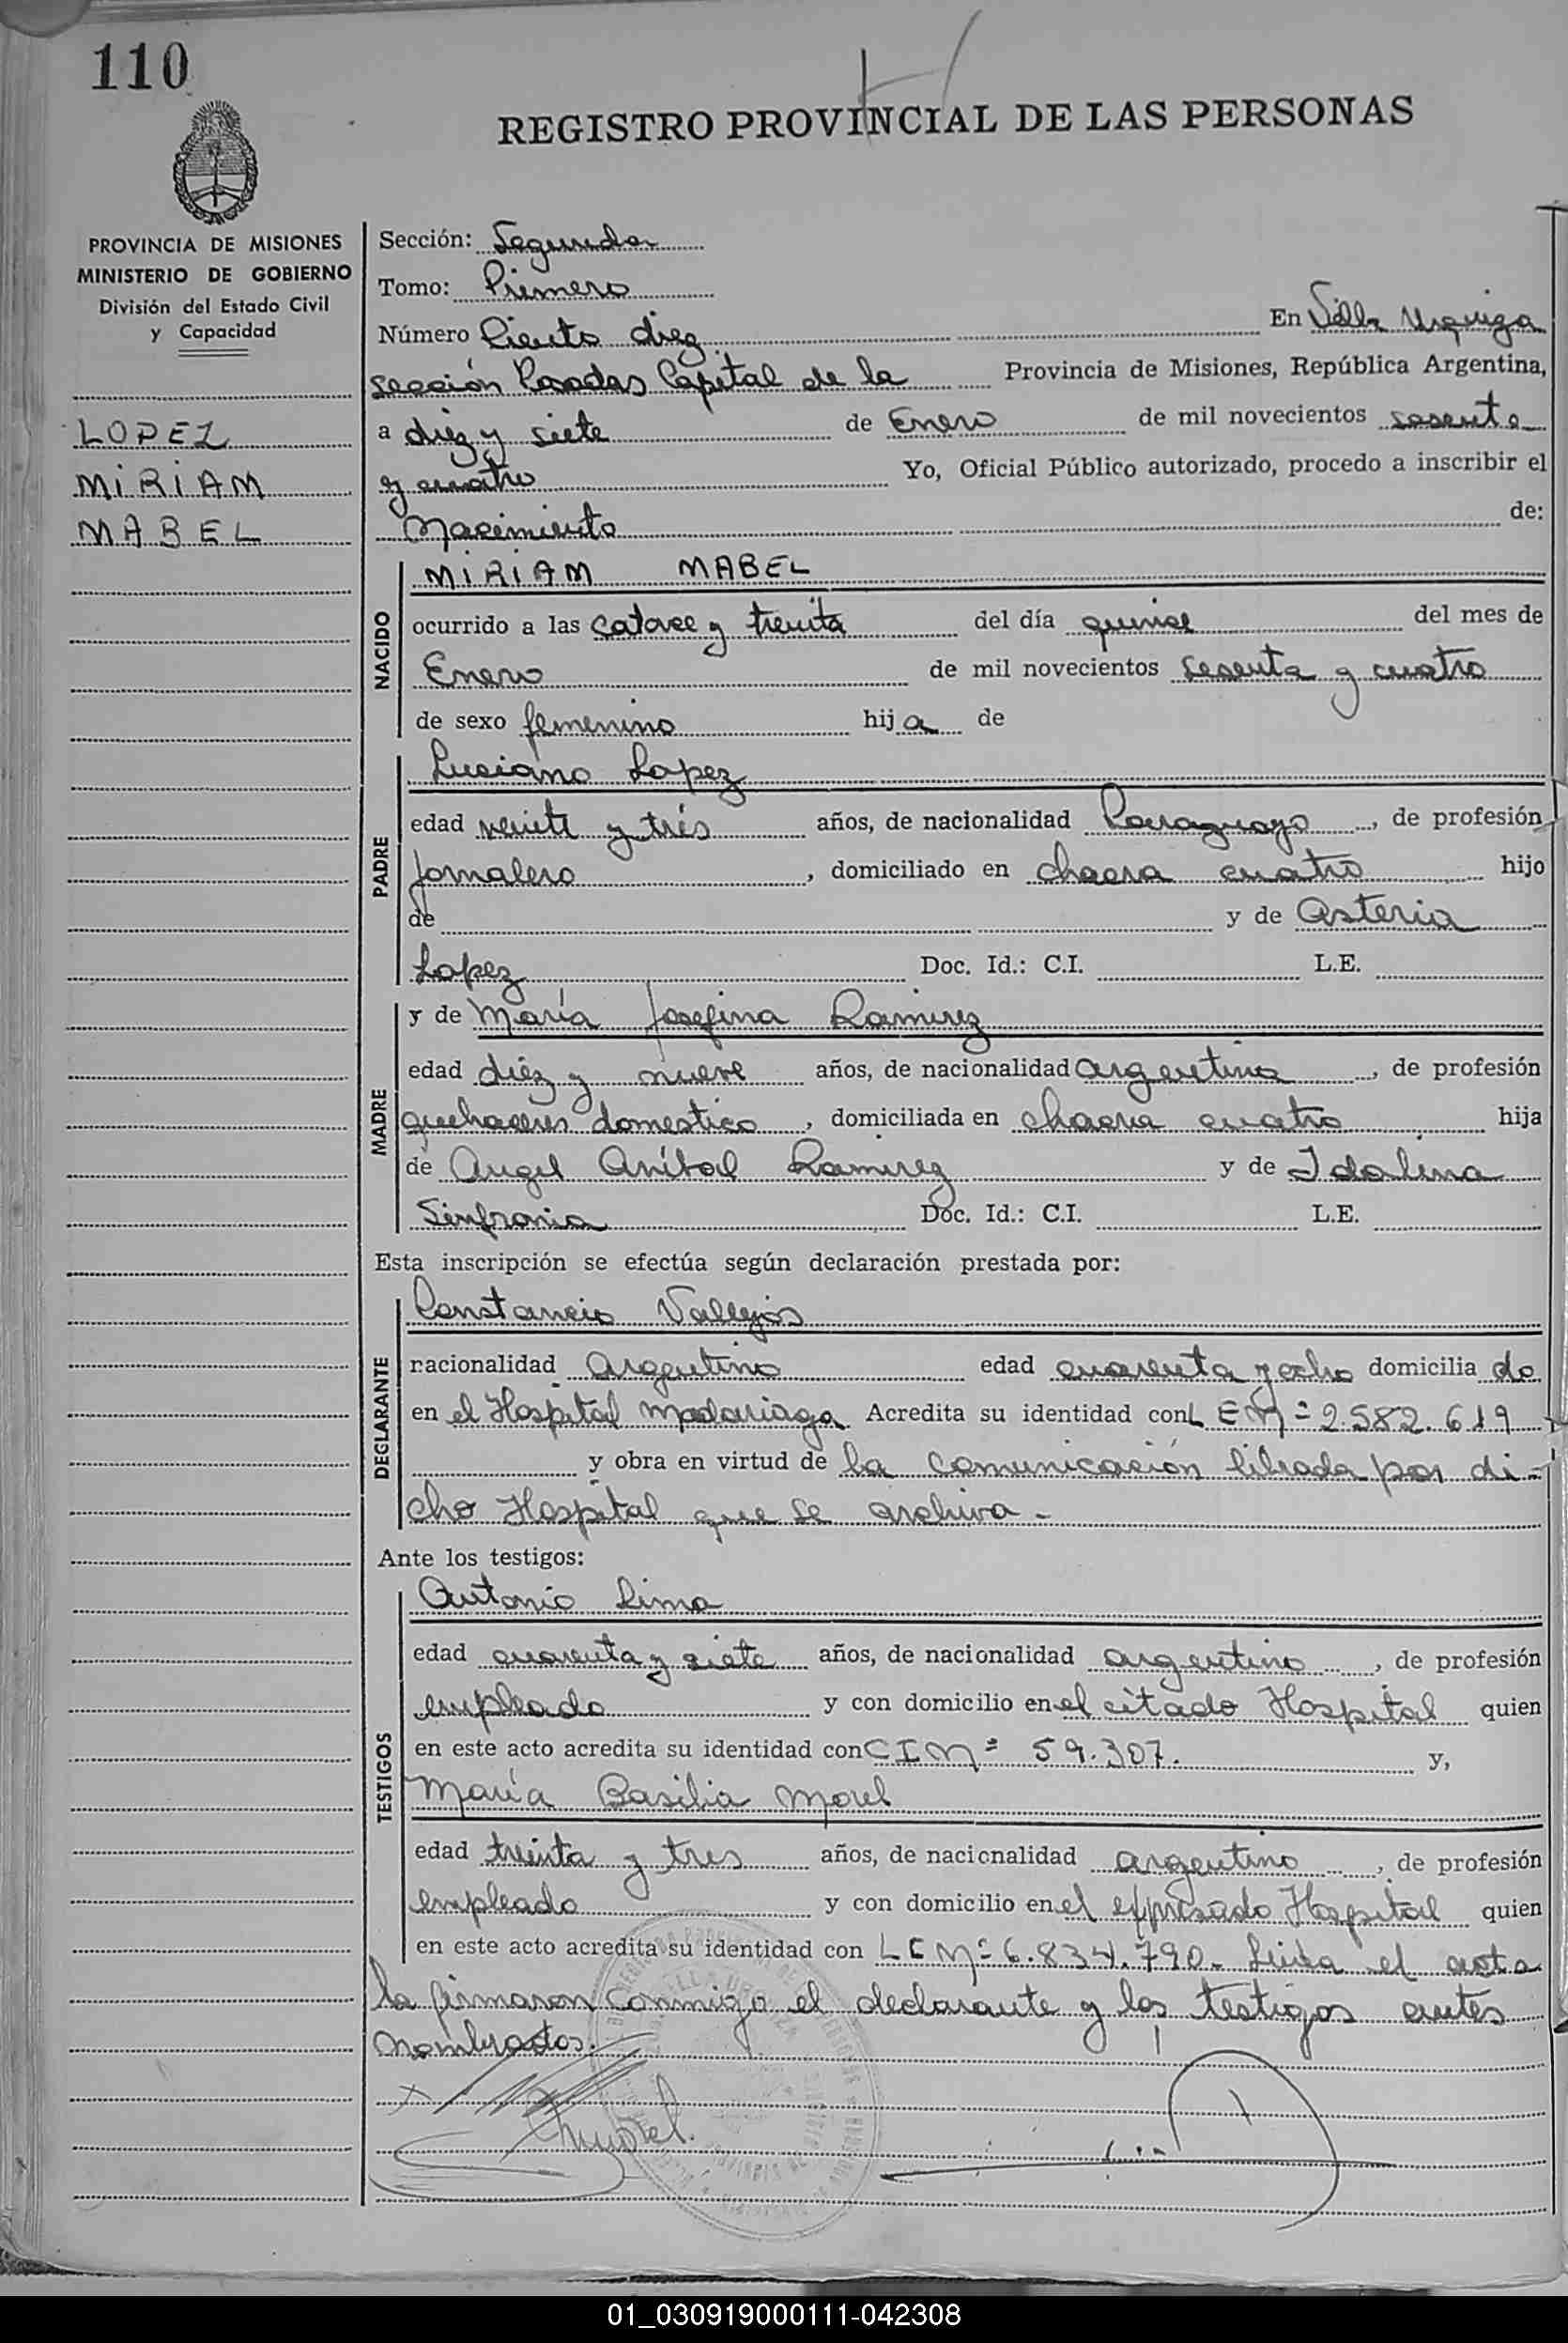 110
REGISTRO PROVINCIAL DE LAS PERSONAS
PROVINCIA DE MISIONES
MINISTERIO DE GOBIERNO
División del Estado Civil
y Capacidad
LOPEZ
MIRIAM
MABEL
Sección: Segunda
Tomo: Primero
Número Ciento diez En Villa Urquiza
sección Posadas Capital de la Provincia de Misiones, República Argentina,
a diez y siete de Enero de mil novecientos sesenta
y cuatro Yo, Oficial Público autorizado, procedo a inscribir el
Nacimiento de:
NACIDO
MIRIAM MABEL
ocurrido a las catorce y treinta del día quince del mes de
Enero de mil novecientos sesenta y cuatro
de sexo femenino hija de
PADRE
Luciano Lopez
edad veinte y trés años, de nacionalidad Paraguayo, de profesión
Jornalero, domiciliado en chacra cuatro hijo
de y de Asteria
Lopez Doc. Id.: C.I. L.E.
MADRE
y de María Josefina Ramirez
edad diéz y nueve años, de nacionalidad argentina, de profesión
quehaceres domestico, domiciliada en chacra cuatro hija
de Angel Aníbal Ramirez y de Idalina
Sinfronia Doc. Id.: C.I. L.E.
Esta inscripción se efectúa según declaración prestada por:
DECLARANTE
Constancio Vallejos
nacionalidad Argentino edad cuarenta y ocho domiciliado
en el Hospital Madariaga Acredita su identidad con L E Nº 2.582.619
y obra en virtud de la comunicación librada por di-
cho Hospital que se archiva.-
Ante los testigos:
TESTIGOS
Antonio Lima
edad cuarenta y siete años, de nacionalidad argentino, de profesión
empleado y con domicilio en el citado Hospital quien
en este acto acredita su identidad con C I Nº 59.307. y,
María Basilia Morel
edad treinta y tres años, de nacionalidad argentino, de profesión
empleado y con domicilio en el expresado Hospital quien
en este acto acredita su identidad con L C Nº 6.834.790.- Leida el acta
la firmaron conmigo el declarante y los testigos antes
nombrados.
01_030919000111-042308